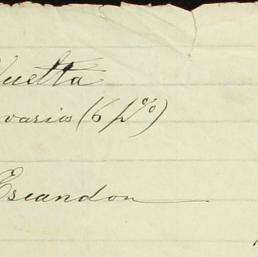 Vuelta
varios (6 p%)
Escandon